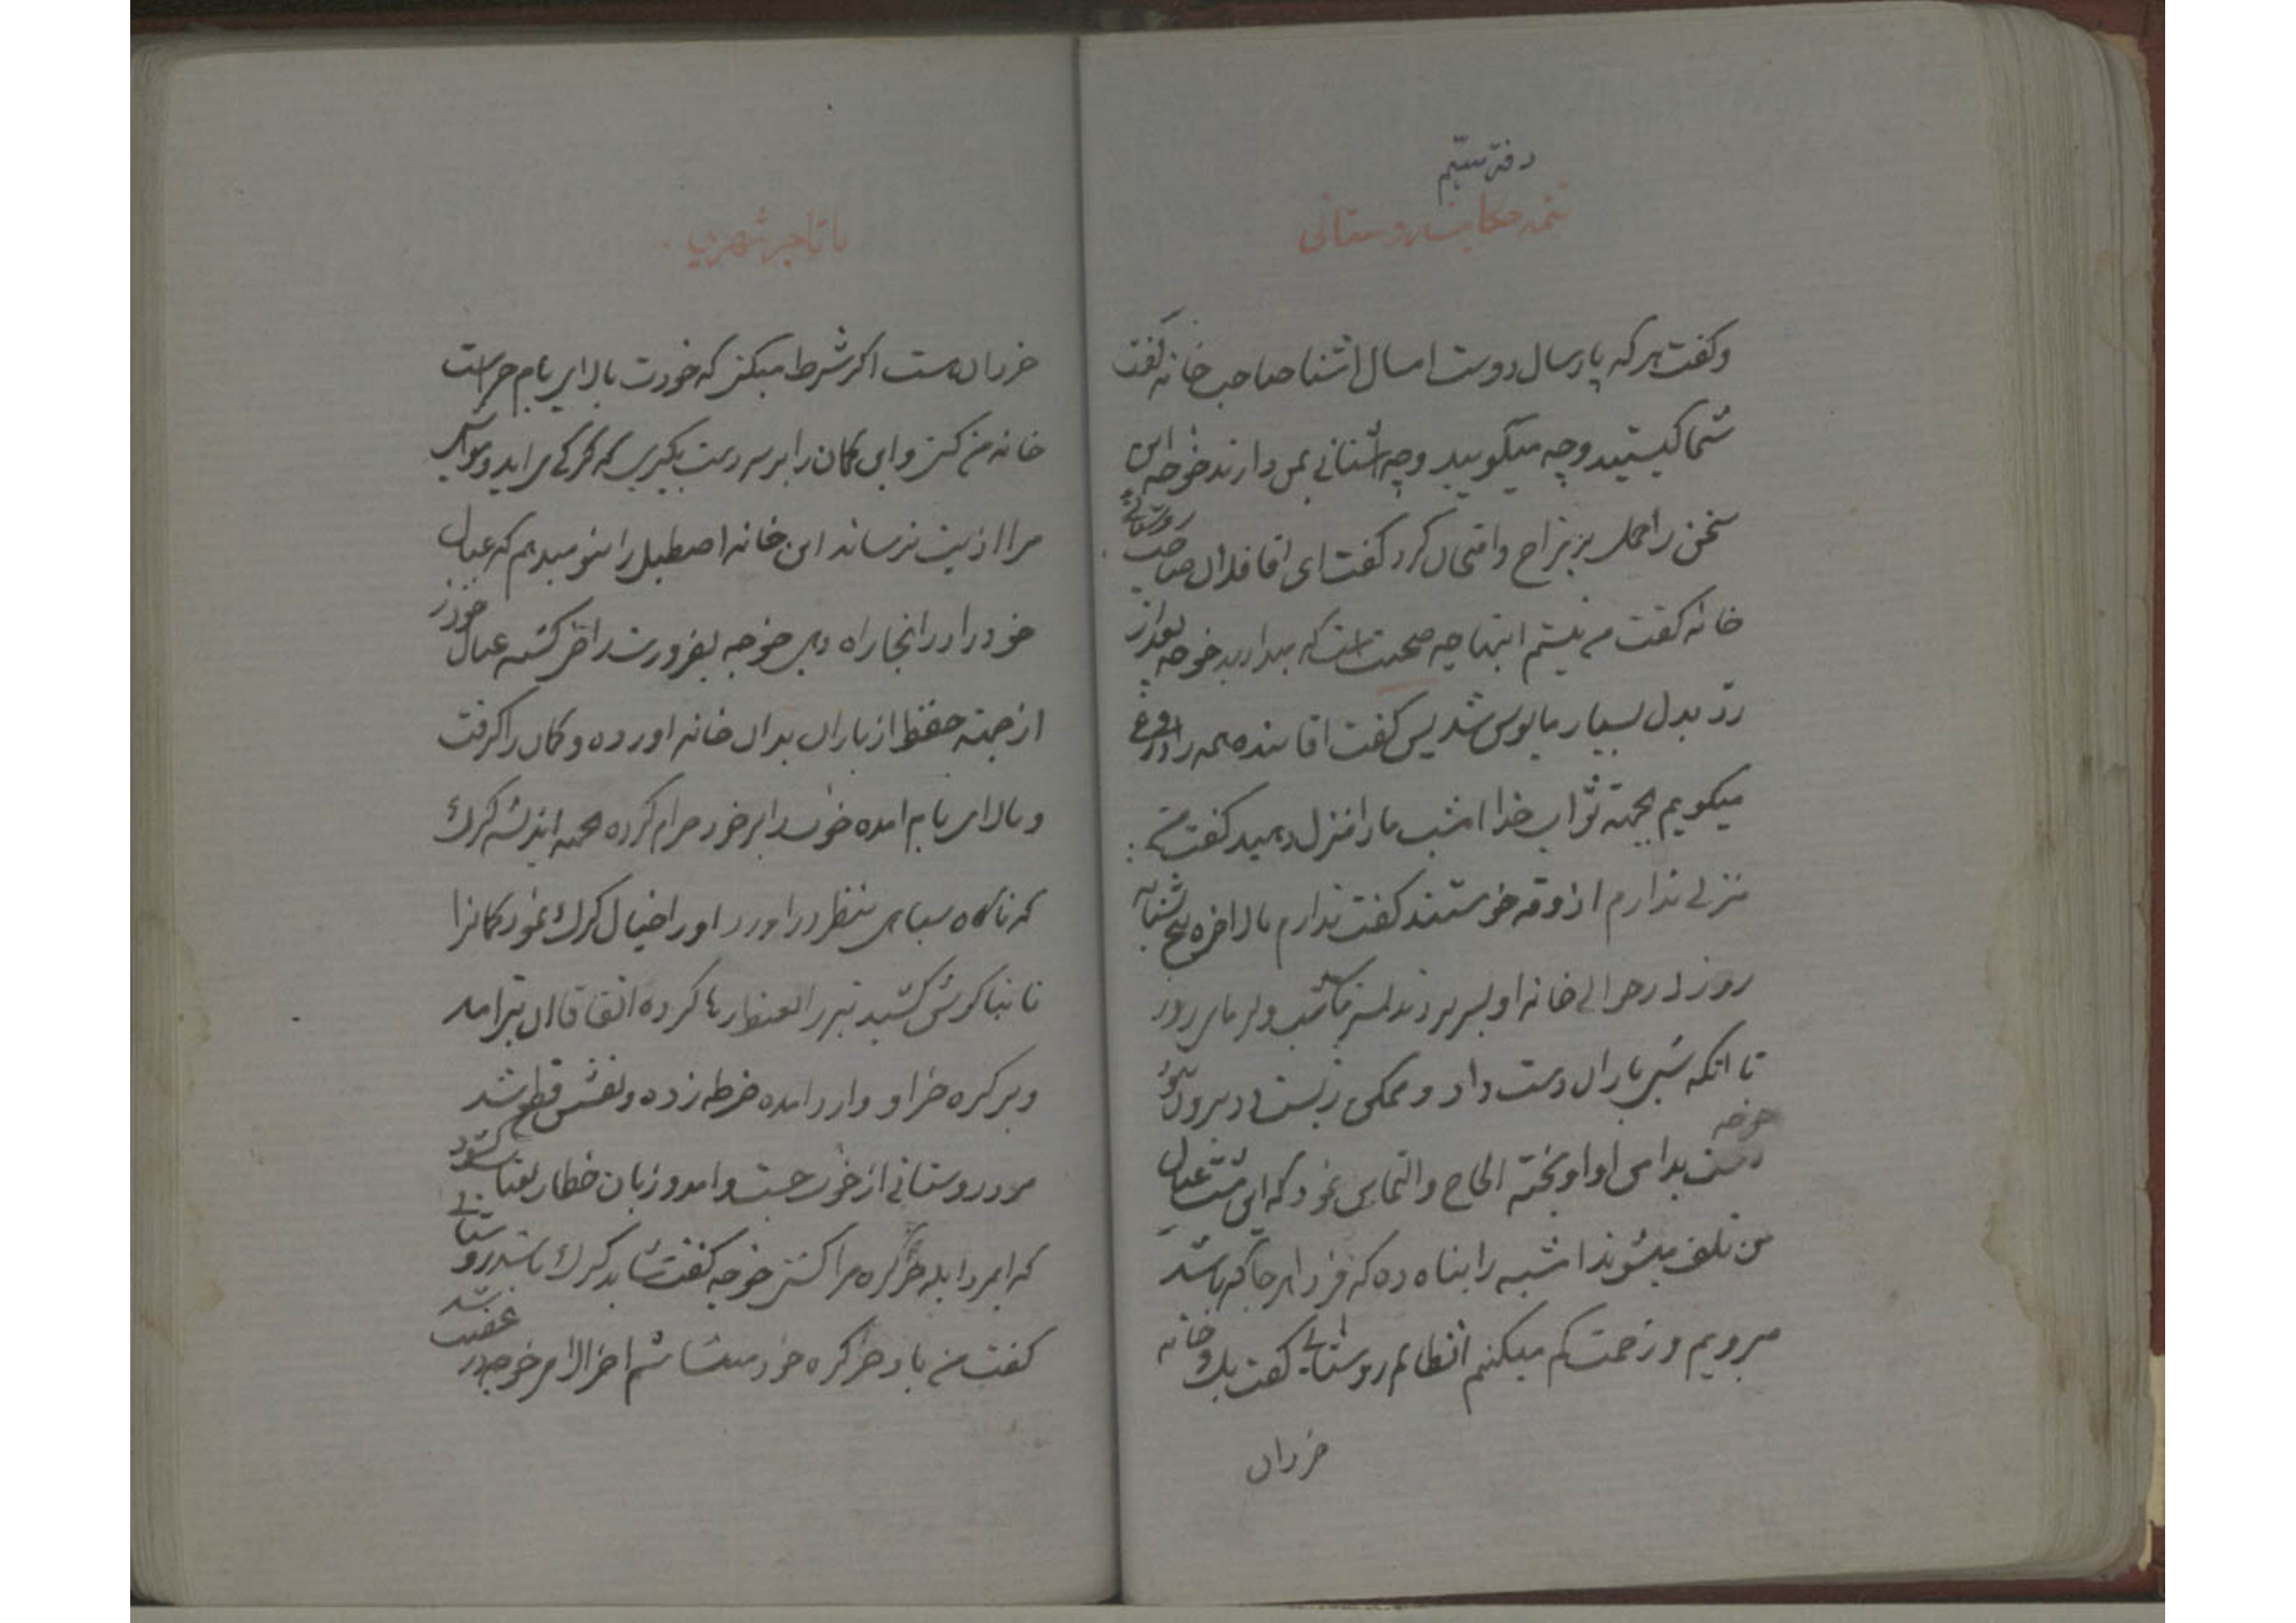 دفتر سیّم
تتمه حکایت روستائی
وکفت هرکه پارسال دوست امسال اشنا صاحب خانه کفت
شما کیستید وچه میکویید وچه اشنائی بمن دارند خوجه این
سخن را حمل بر مزاح وامتحان کرد کفت ای اقا فلان صاحب روستائی
خانه کفت من نیستم اینها چه صحبت است که میدارید خوجه بعد از
ردّ بدل بسیار مایوس شد پس کفت اقا بنده همه را دروغ
میکویم بجهته ثواب خدا امشب ما را منزل دهید کفت من
منزلی ندارم اذوقه خوستند کفت ندارم بالاخره پنج شبانه
روز در حوالی خانه او بسر بردند بسرمای شب وکرمای روز
تا انکه شبی باران دست داد و ممکن زیست در بیرون نبود
خوجه دست بدامن او اویخته الحاح والتماس نمود که این مشت عیال
من تلف میشوند امشبه را پناه ده که فردا هر جا که باشد
میرویم و زحمت کم میکنم انظالم روستائی کفت یک خانه
خر دان
با تاجر شهری
خر دان هست اکر شرط میکنی که خودت بالای بام حراست
خانه من کنی و این کمان را بر سر دست بکیری که کرکی می اید
مرا اذیت نرساند این خانه اصطبل را بتو میدهم که عیال
خود را در انجا راه دهی خوجه بضرورت راضی کشته عیال خود را
از جهته حفظ از باران بدان خانه اورده و کمان را کرفت
و بالای بام امده خواب را بر خود حرام کرده بجهته اندیشه کرک
که ناکاه سیاهی بنظر در اورد او را خیال کرک نمود کمان را
تا بناکوش کشید تیر را بعنف رها کرده اتفاقا ان تیر امد
و بر کره خر او وارد امده ضرطه زده و نفسش قطع شد
مرد روستائی از خواب جست و امد و زبان خطاب بعتاب کشود
که ایمرد ابله خر کره مرا کشتی خوجه کفت شاید کرک باشد روستائی
کفت من باد خر کره خود میشناسم اخر الامر خوجه در غضب شد